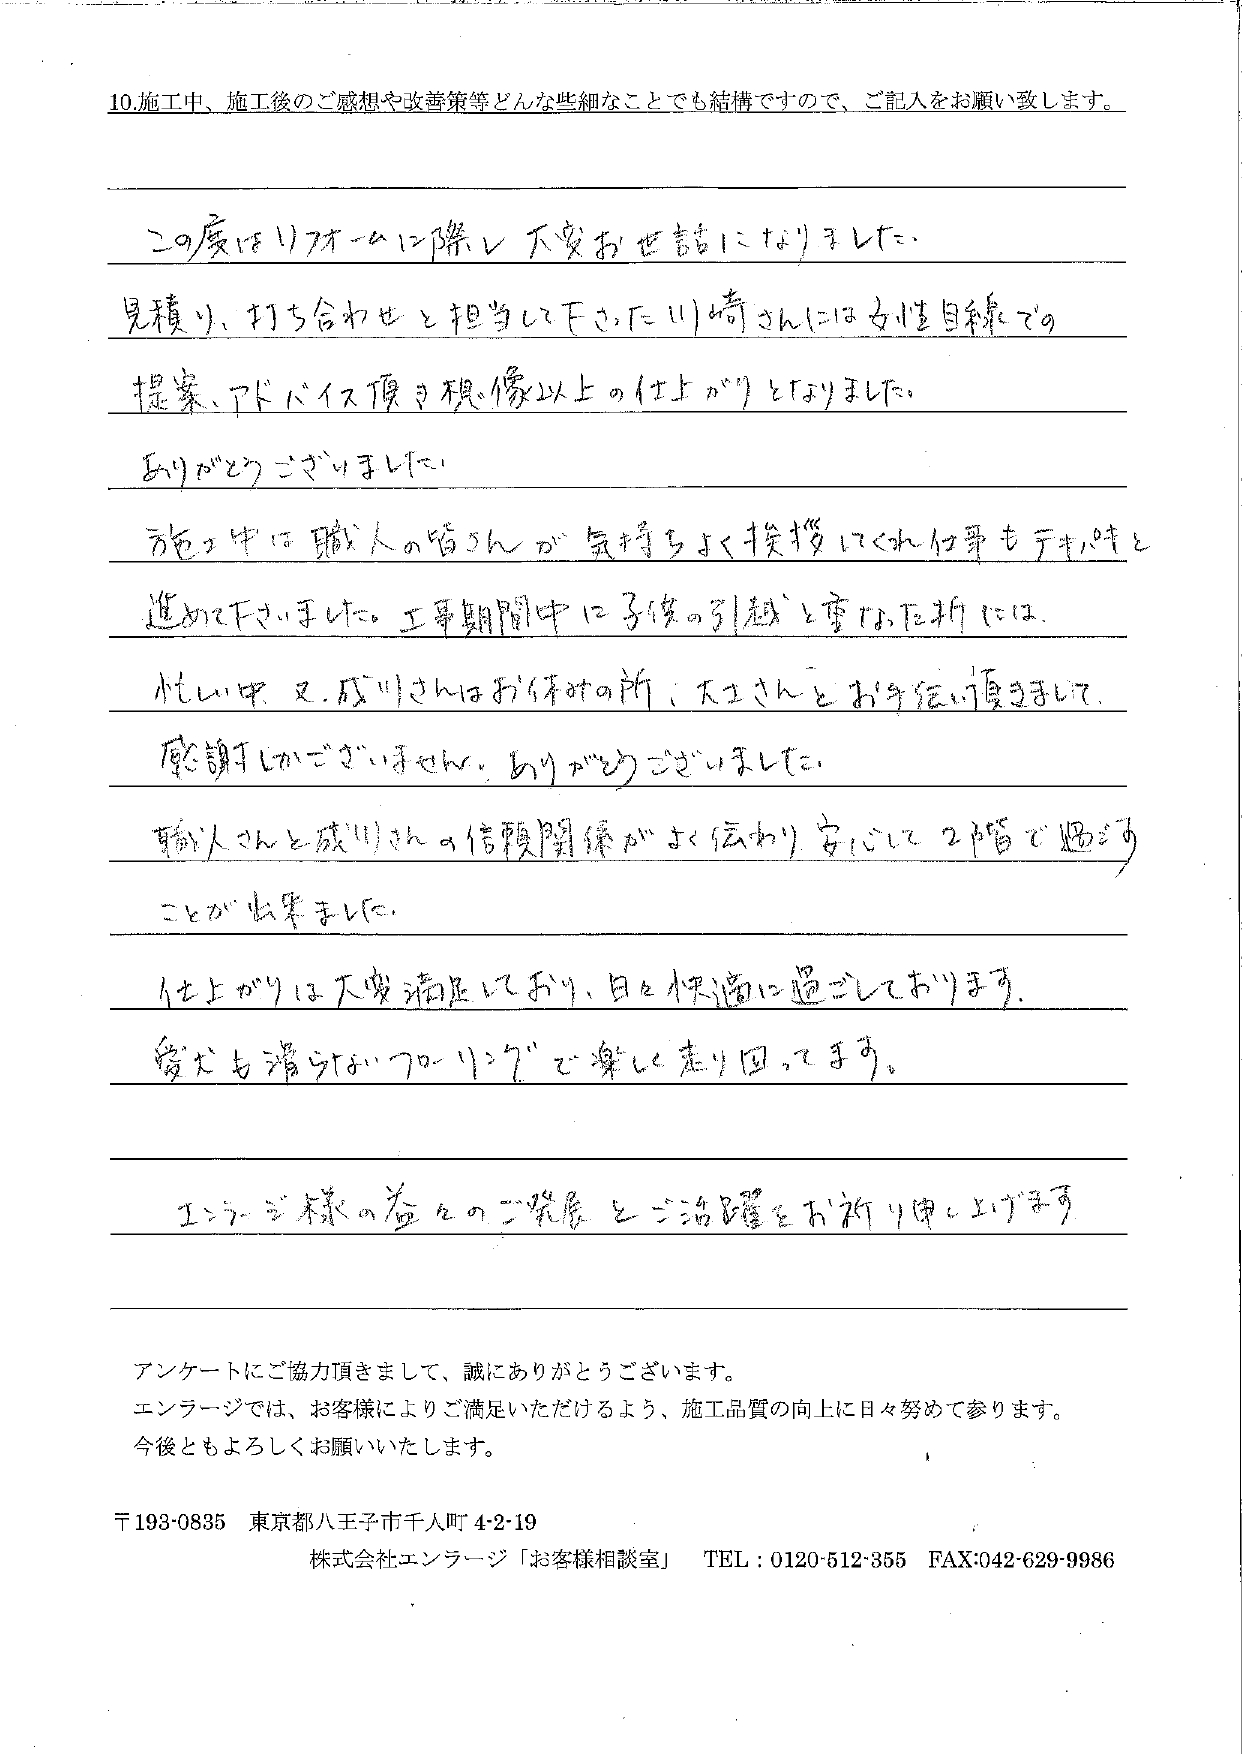 10.施工中、施工後のご感想や改善策等どんな些細なことでも結構ですので、ご記入をお願い致します。
この度はリフォームに際し 大変お世話になりました.
見積り、打ち合わせと担当して下さった川崎さんには女性目線での
提案、アドバイス頂き想像以上の仕上がりとなりました。
ありがとうございました.
施工中は職人の皆さんが気持ちよく挨拶してくれ仕事もテキパキと
進めて下さいました。工事期間中に子供の引越と重なった折には.
忙しい中 又.成川さんはお休みの所、大工さんとお手伝い頂きまして.
感謝しかございません。ありがとうございました.
職人さんと成川さんの信頼関係がよく伝わり安心して2階で過ごす
ことが出来ました.
仕上がりは大変満足しており、日々快適に過ごしております.
愛犬も滑らないフローリングで楽しく走り回ってます。
エンラージ様の益々のご発展とご活躍をお祈り申し上げます
アンケートにご協力頂きまして、誠にありがとうございます。
エンラージでは、お客様によりご満足いただけるよう、施工品質の向上に日々努めて参ります。
今後ともよろしくお願いいたします。
〒193-0835 東京都八王子市千人町 4-2-19
株式会社エンラージ「お客様相談室」 TEL：0120-512-355 FAX:042-629-9986